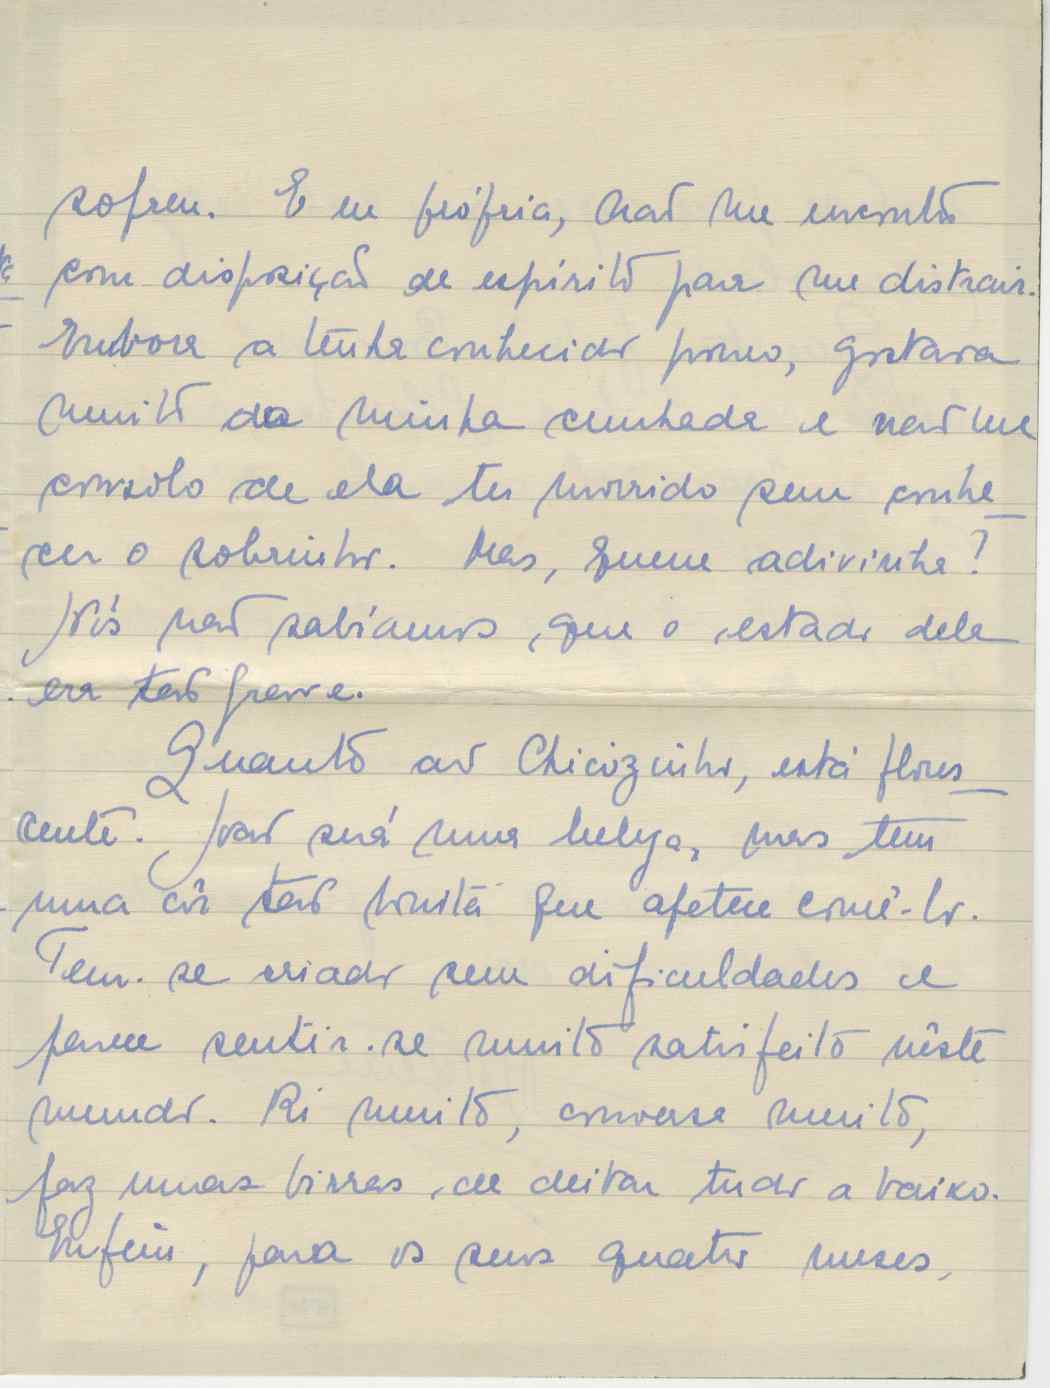 sofreu. E eu própria, não me encontro
com disposição de espírito para me distrair.
Embora a tenha conhecido pouco, gostava
muito da minha cunhada e não me
consolo de ela ter morrido sem conhe_
cer o sobrinho. Mas, quem adivinha?
Nós não sabíamos que o estado dela
era tão grave.
Quanto ao Chicozinho, está flores_
cente. Não será uma beleza, mas tem
uma côr tão bonita que apetece comê-lo.
Tem-se criado sem dificuldades e
parece sentir-se muito satisfeito nêste
mundo. Ri muito, conversa muito,
faz umas birras de deitar tudo a baixo.
Enfim, para os seus quatro meses,